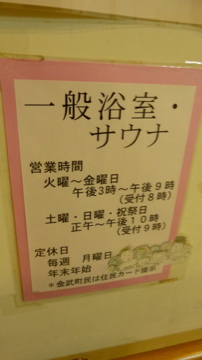 一般浴室・
サウナ
営業時間
火曜～金曜日
午後3時～午後9時
(受付8時)
土曜・日曜・祝祭日
正午～午後10時
(受付9時)
定休日
毎週 月曜日
年末年始
*金武町民は住民カード提示